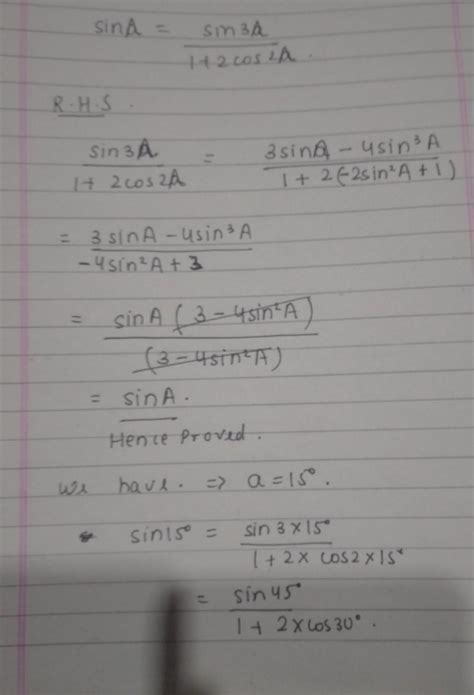 sinA = sin3A / 1+2cos2A.
R.H.S.
sin3A / 1+ 2cos2A = 3sinA - 4sin³A / 1 + 2(-2sin²A + 1)
= 3sinA - 4sin³A / -4sin²A + 3
= sinA (3 - 4sin²A) / (3 - 4sin²A)
= sinA.
Hence Proved.
we have. => a = 15°.
sin15° = sin 3×15° / 1 + 2× cos2×15°
= sin 45° / 1 + 2×cos30°.